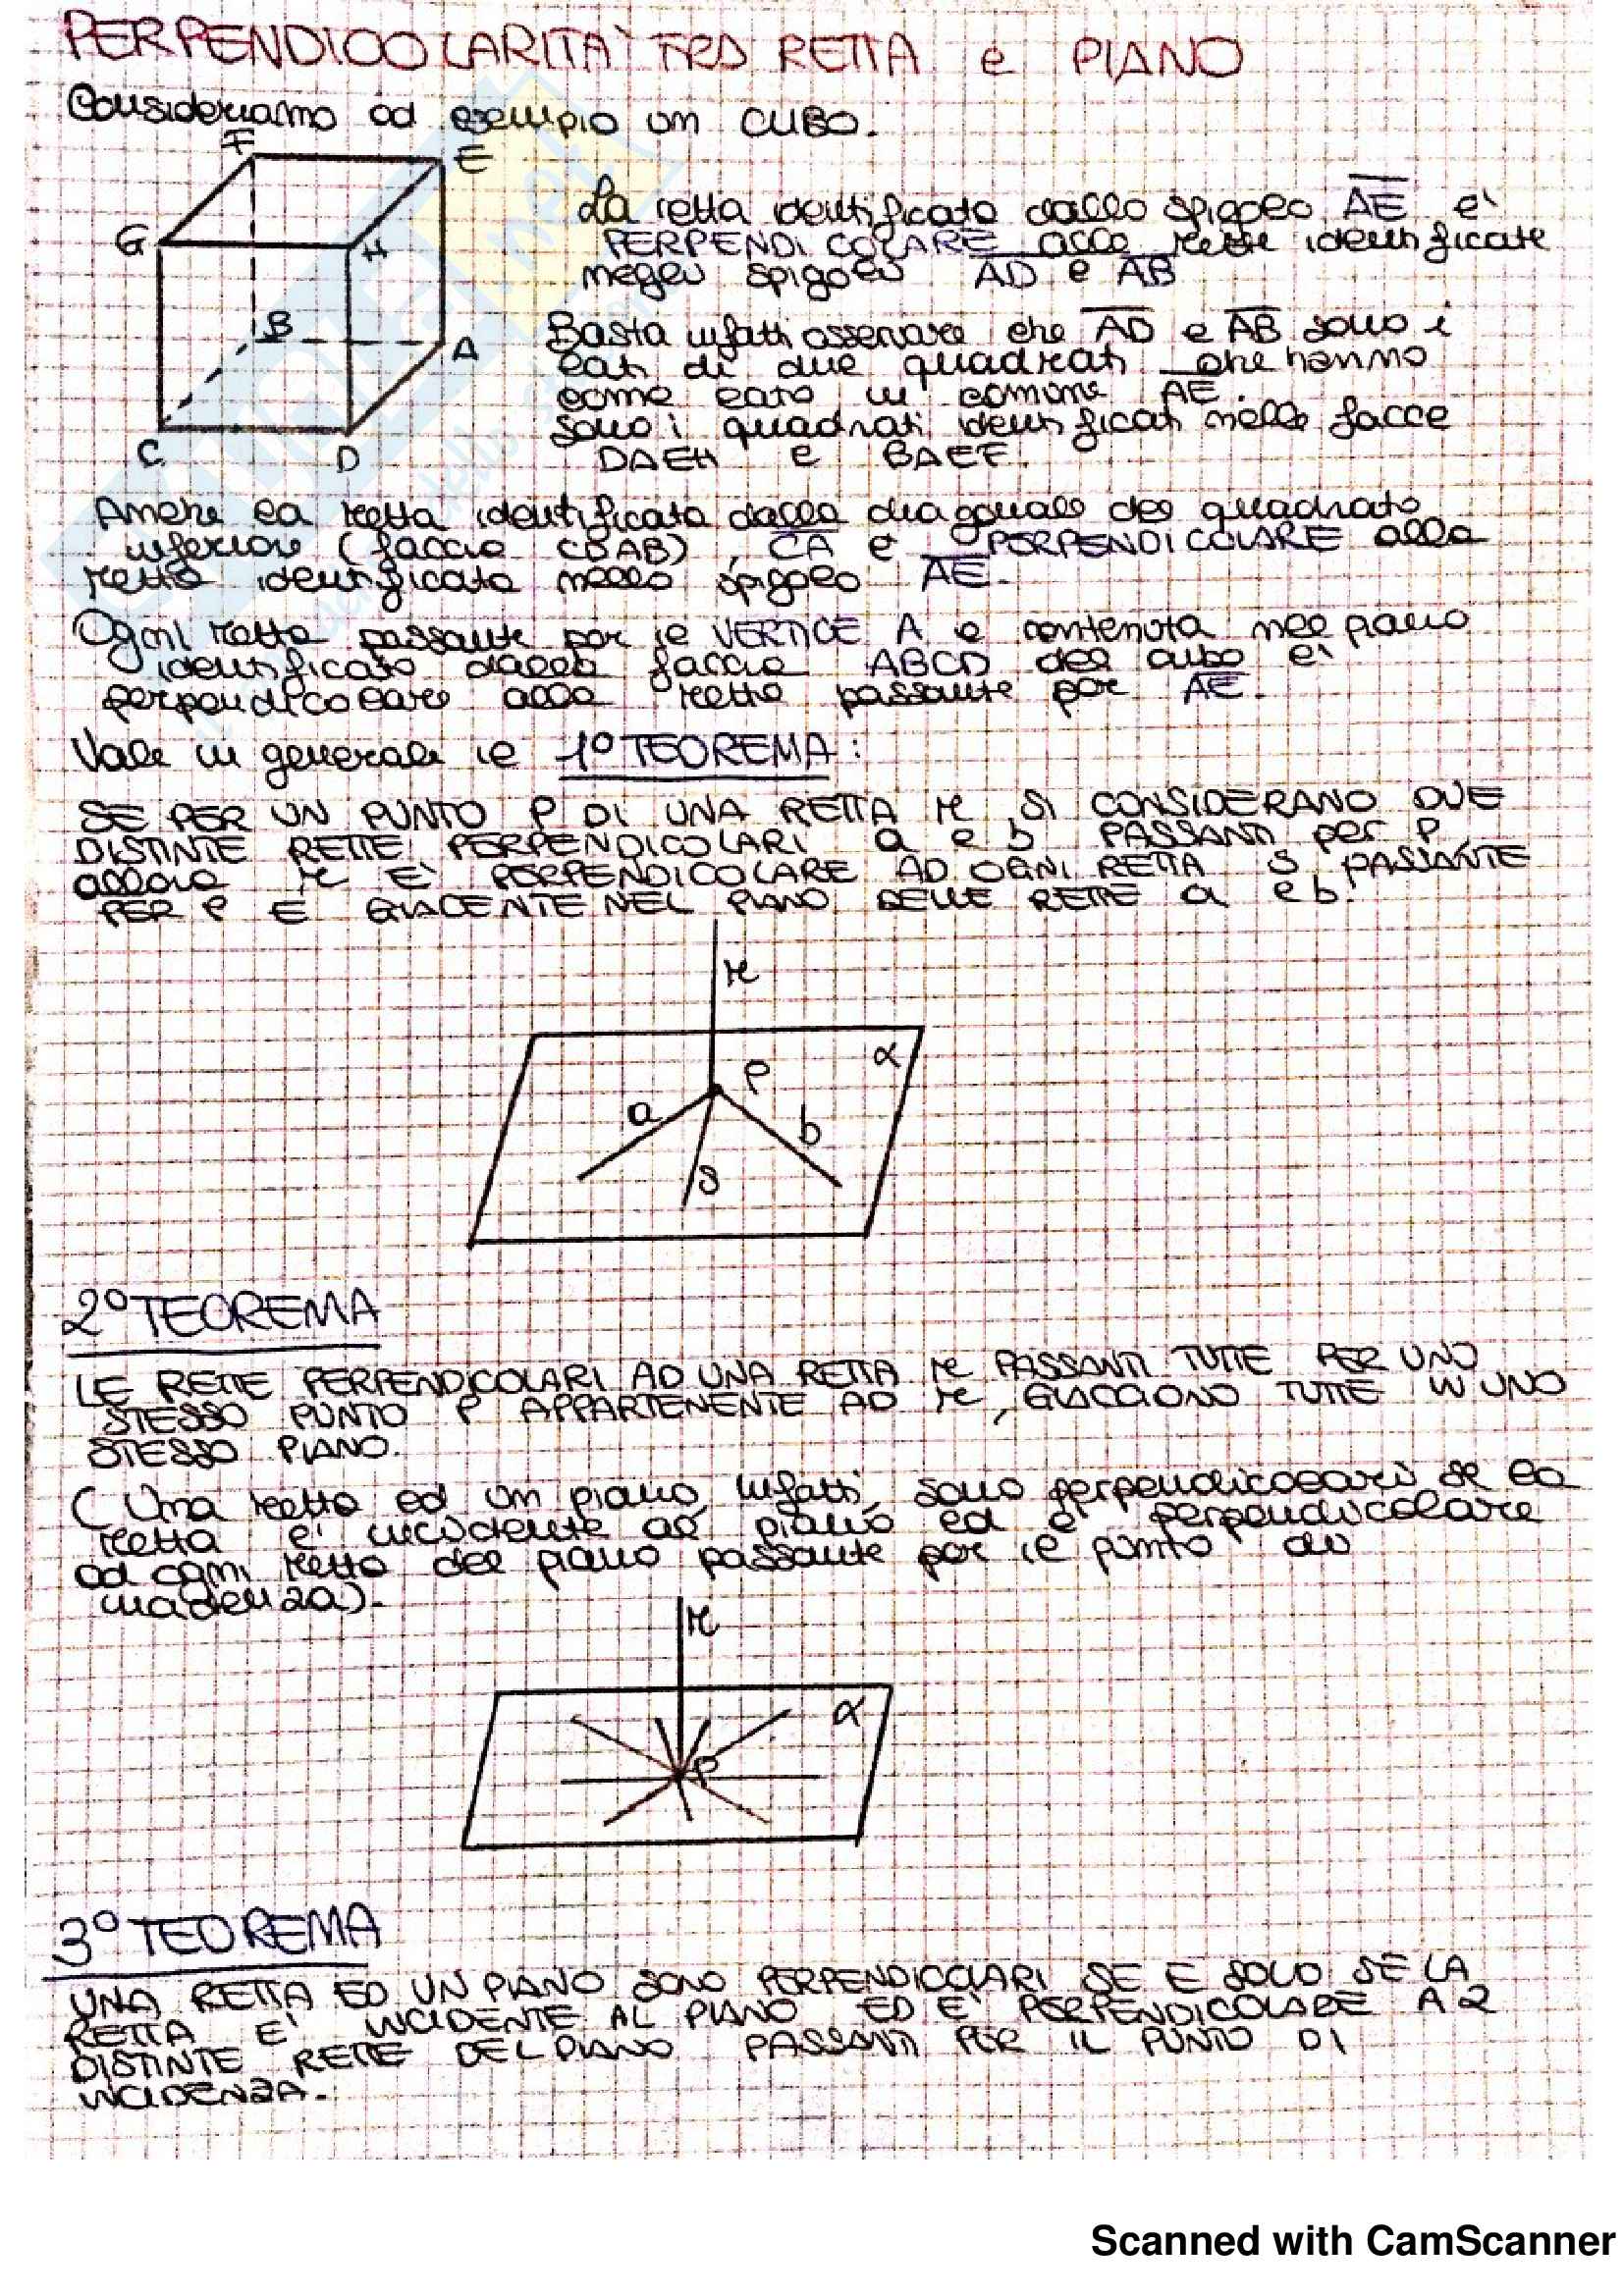 PERPENDICOLARITA' TRA RETTA e PIANO
Consideriamo ad esempio un CUBO.
F
E
G
H
B
A
C
D
La retta identificata dallo spigolo AE e'
PERPENDICOLARE alle rette identificate
negli spigoli AD e AB
Basta infatti osservare che AD e AB sono i
lati di due quadrati che hanno
come lato in comune AE.
sono i quadrati identificati nelle facce
DAEH e BAEF.
Anche la retta identificata dalla diagonale del quadrato
inferiore (faccia CDAB), CA e' PERPENDICOLARE alla
retta identificata nello spigolo AE.
Ogni retta passante per il VERTICE A e contenuta nel piano
identificato dalla faccia ABCD del cubo e'
perpendicolare alla retta passante per AE.
Vale in generale il 1° TEOREMA:
SE PER UN PUNTO P DI UNA RETTA r SI CONSIDERANO DUE
DISTINTE RETTE PERPENDICOLARI a e b PASSANTI per P,
allora r E' PERPENDICOLARE AD OGNI RETTA S PASSANTE
PER P E GIACENTE NEL PIANO DELLE RETTE a e b.
r
α
P
a
b
S
2° TEOREMA
LE RETTE PERPENDICOLARI AD UNA RETTA r PASSANTI TUTTE PER UNO
STESSO PUNTO P APPARTENENTE AD r, GIACCIONO TUTTE IN UNO
STESSO PIANO.
(Una retta ed un piano, infatti, sono perpendicolari se la
retta e' incidente al piano ed e' perpendicolare
ad ogni retta del piano passante per il punto di
incidenza).
r
α
P
3° TEOREMA
UNA RETTA ED UN PIANO SONO PERPENDICOLARI SE E SOLO SE LA
RETTA E' INCIDENTE AL PIANO ED E' PERPENDICOLARE A 2
DISTINTE RETTE DEL PIANO PASSANTI PER IL PUNTO DI
INCIDENZA.
Scanned with CamScanner